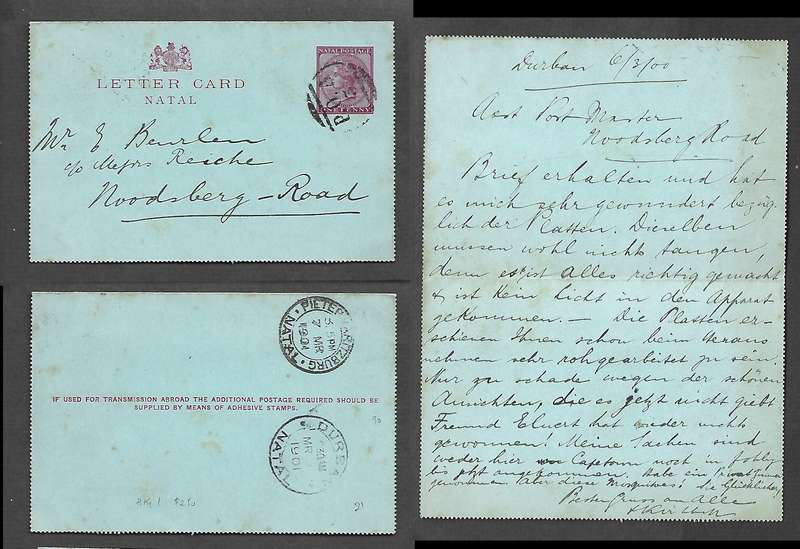 LETTER CARD
NATAL
NATAL POSTAGE
ONE PENNY
Mr E Beurlen
c/o Messrs Reiche
Noodsberg-Road
PIETERMARITZBURG · NATAL
7 MR
1901
IF USED FOR TRANSMISSION ABROAD THE ADDITIONAL POSTAGE REQUIRED SHOULD BE
SUPPLIED BY MEANS OF ADHESIVE STAMPS.
DURBAN
MR
1901
NATAL
21
Durban 6/3/00
Asst Post Master
Noodsberg Road
Brief erhalten und hat
es mich sehr gewundert bezüg
lich der Platten. Dieselben
müssen wohl nichts taugen,
denn es ist alles richtig gemacht
& ist kein Licht in den Apparat
gekommen. — Die Platten er-
schienen Ihnen schon beim Heraus
nehmen sehr rohgearbeitet zu sein.
Nur zu schade wegen der schönen
Ansichten, die es jetzt nicht giebt
Freund Eluert hat wieder nicht
gewonnen! Meine Sachen sind
weder hier Capetown noch in
bis jetzt angekommen. Habe ein
genommen aber diese Mosquitos! Sie Glücklicher
Besten Gruss an Alle